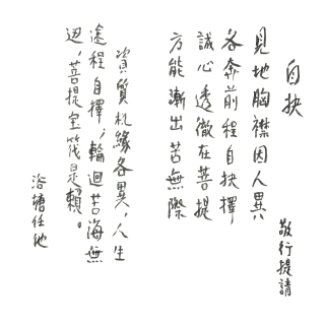 自抉
敬行提請
見地胸襟因人異
各奔前程自抉擇
誠心透徹在菩提
方能漸出苦無際
資質机緣各異，人生
途程自擇，輪迴苦海無
边，菩提宝筏是賴。